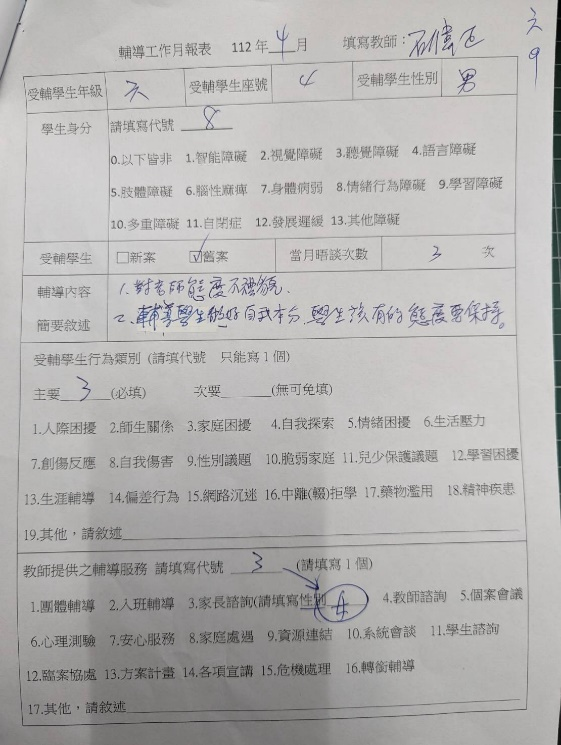 六
9
輔導工作月報表 112年 4 月 填寫教師：
受輔學生年級 六 受輔學生座號 4 受輔學生性別 男
學生身分 請填寫代號 8
0.以下皆非 1.智能障礙 2.視覺障礙 3.聽覺障礙 4.語言障礙
5.肢體障礙 6.腦性麻痺 7.身體病弱 8.情緒行為障礙 9.學習障礙
10.多重障礙 11.自閉症 12.發展遲緩 13.其他障礙
受輔學生 □新案 ☑舊案 當月晤談次數 3 次
輔導內容 1.對老師態度不禮貌.
簡要敘述 2.輔導學生做好自我本分,學生該有的態度要保持。
受輔學生行為類別 (請填代號 只能寫1個)
主要 3 (必填) 次要______(無可免填)
1.人際困擾 2.師生關係 3.家庭困擾 4.自我探索 5.情緒困擾 6.生活壓力
7.創傷反應 8.自我傷害 9.性別議題 10.脆弱家庭 11.兒少保護議題 12.學習困擾
13.生涯輔導 14.偏差行為 15.網路沉迷 16.中離(輟)拒學 17.藥物濫用 18.精神疾患
19.其他，請敘述
教師提供之輔導服務 請填寫代號 3 (請填寫1個)
1.團體輔導 2.入班輔導 3.家長諮詢(請填寫性別 女 4.教師諮詢 5.個案會議
6.心理測驗 7.安心服務 8.家庭處遇 9.資源連結 10.系統會談 11.學生諮詢
12.臨案協處 13.方案計畫 14.各項宣講 15.危機處理 16.轉銜輔導
17.其他，請敘述